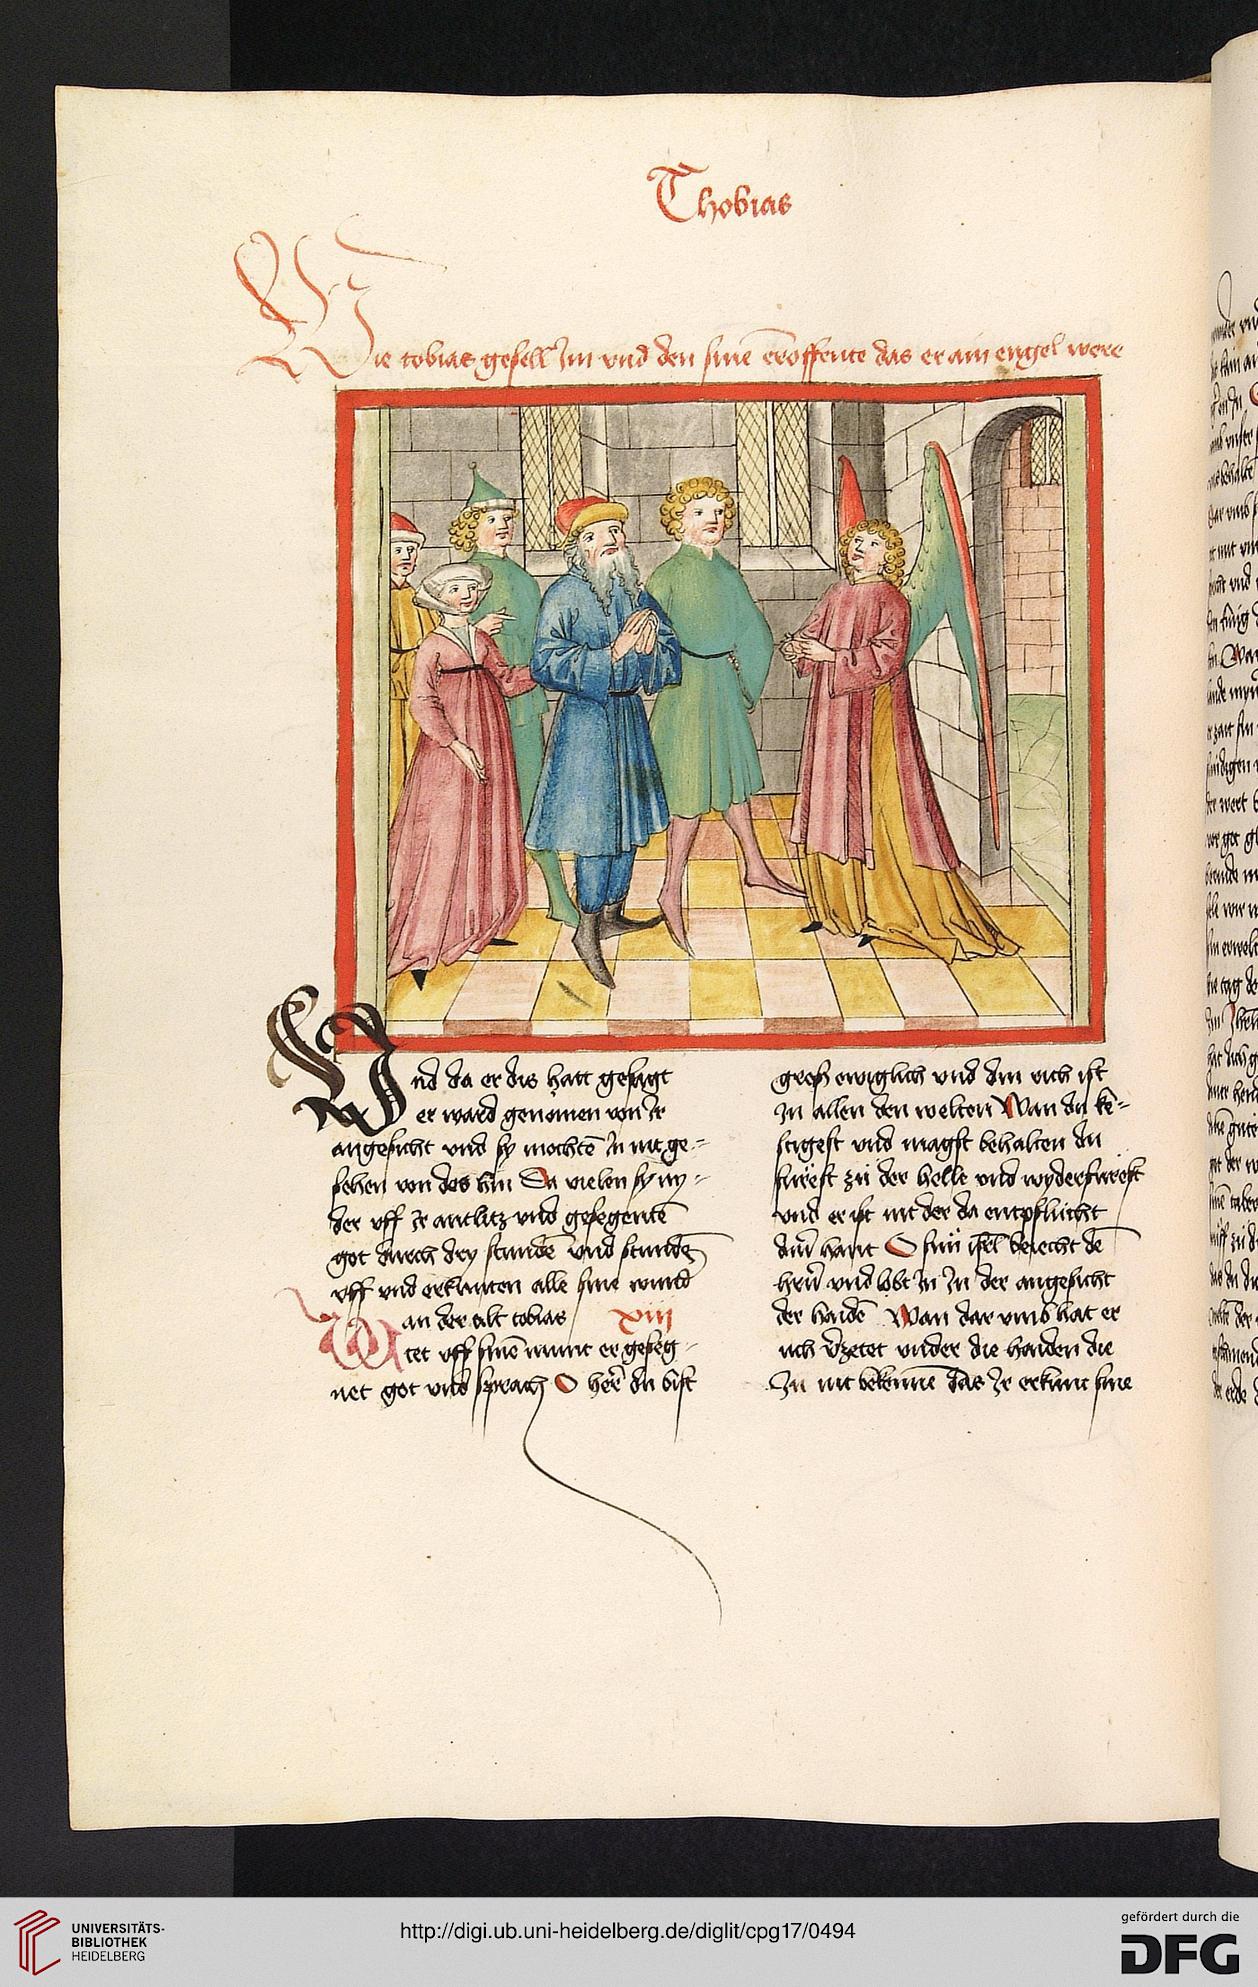 Thobias
Wie tobias gesell Im vnd den sinē eroffente das er ain engel were
Vnd da er dis hatt gesagt
er ward genomen von Ir
angesicht vnd sy mochtē In nit ge-
sehen von des hin Da vielen sy ny-
der vff Ir antlitz vnd gesegentē
got durch dry stundē vnd stundē
vff vnd erkunten alle sine wund
Wan der alt tobias xiij
tet vff sinē munt er geseg-
net got vnd sprach O herē du bist
groß ewiglich vnd din rich ist
In allen den welten Wan du kē-
stigest vnd magst behalten du
fürest zü der helle vnd wyderfürest
vnd er ist nit der da entpflücht
din hant O sün isrl berecht dē
herrn vnd lobt In In der angesicht
der haidē Wan dar vmb hat er
uch vzetet vnder die haiden die
In nit bekennē das Ir erkunt sine
UNIVERSITÄTS-
BIBLIOTHEK
HEIDELBERG
http://digi.ub.uni-heidelberg.de/diglit/cpg17/0494
gefördert durch die
DFG